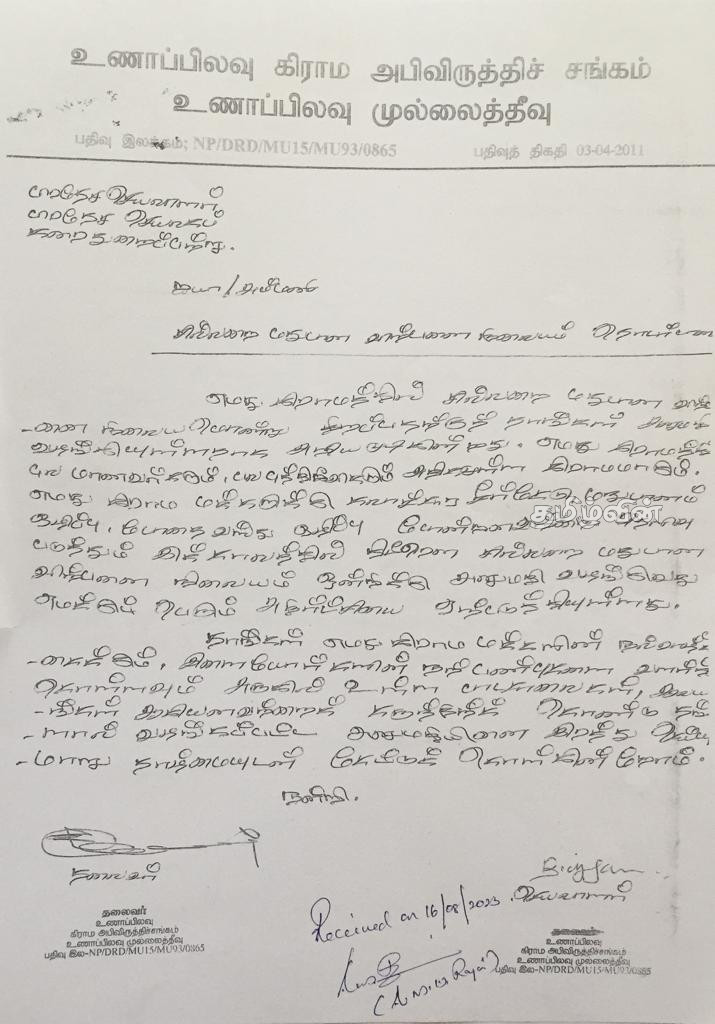 உணாப்பிலவு கிராம அபிவிருத்திச் சங்கம்
உணாப்பிலவு முல்லைத்தீவு
பதிவு இலக்கம்; NP/DRD/MU15/MU93/0865 பதிவுத் திகதி 03-04-2011
பிரதேச செயலாளர்
பிரதேச செயலகம்
கரைதுறைப்பற்று.
ஐயா/அம்மணி
சில்லறை மதுபான விற்பனை நிலையம் தொடர்பான
எமது கிராமத்தில் சில்லறை மதுபான விற்ப
-னை நிலையமொன்று திறப்பதற்கு தாங்கள் அனுமதி
வழங்கியுள்ளதாக அறிய முடிகின்றது. எமது கிராமத்தில்
பல மாணவர்களும், கிராமமாகும்.
எமது கிராம மக்களுக்கு மதுபானம்
போதை
தமிழ்வின்
இக்காலத்தில் சில்லறை மதுபான
விற்பனை நிலையம் ஒன்றிற்கு அனுமதி வழங்கியது
எமக்கும் பெரும் அதிர்ச்சியை ஏற்படுத்தியுள்ளது.
தாங்கள் எமது கிராம மக்களின்
இளையோர்களின் நற்பண்புகளை
கொள்ளவும் அருகில் உள்ள பாடசாலைகள்,
ஆகியனவற்றைக் கருத்திற்க் கொண்டு தங்
-களால் வழங்கப்பட்ட அனுமதியினை இரத்து செய்யு
-மாறு தாழ்மையுடன் கேட்டுக் கொள்கின்றோம்.
நன்றி.
தலைவர்
தலைவர்
உணாப்பிலவு
கிராம அபிவிருத்திச்சங்கம்
உணாப்பிலவு முல்லைத்தீவு
பதிவு இல-NP/DRD/MU15/MU93/0865
Received on 16/08/2023
செயலாளர்
உணாப்பிலவு
கிராம அபிவிருத்திச்சங்கம்
உணாப்பிலவு முல்லைத்தீவு
பதிவு இல-NP/DRD/MU15/MU93/0865